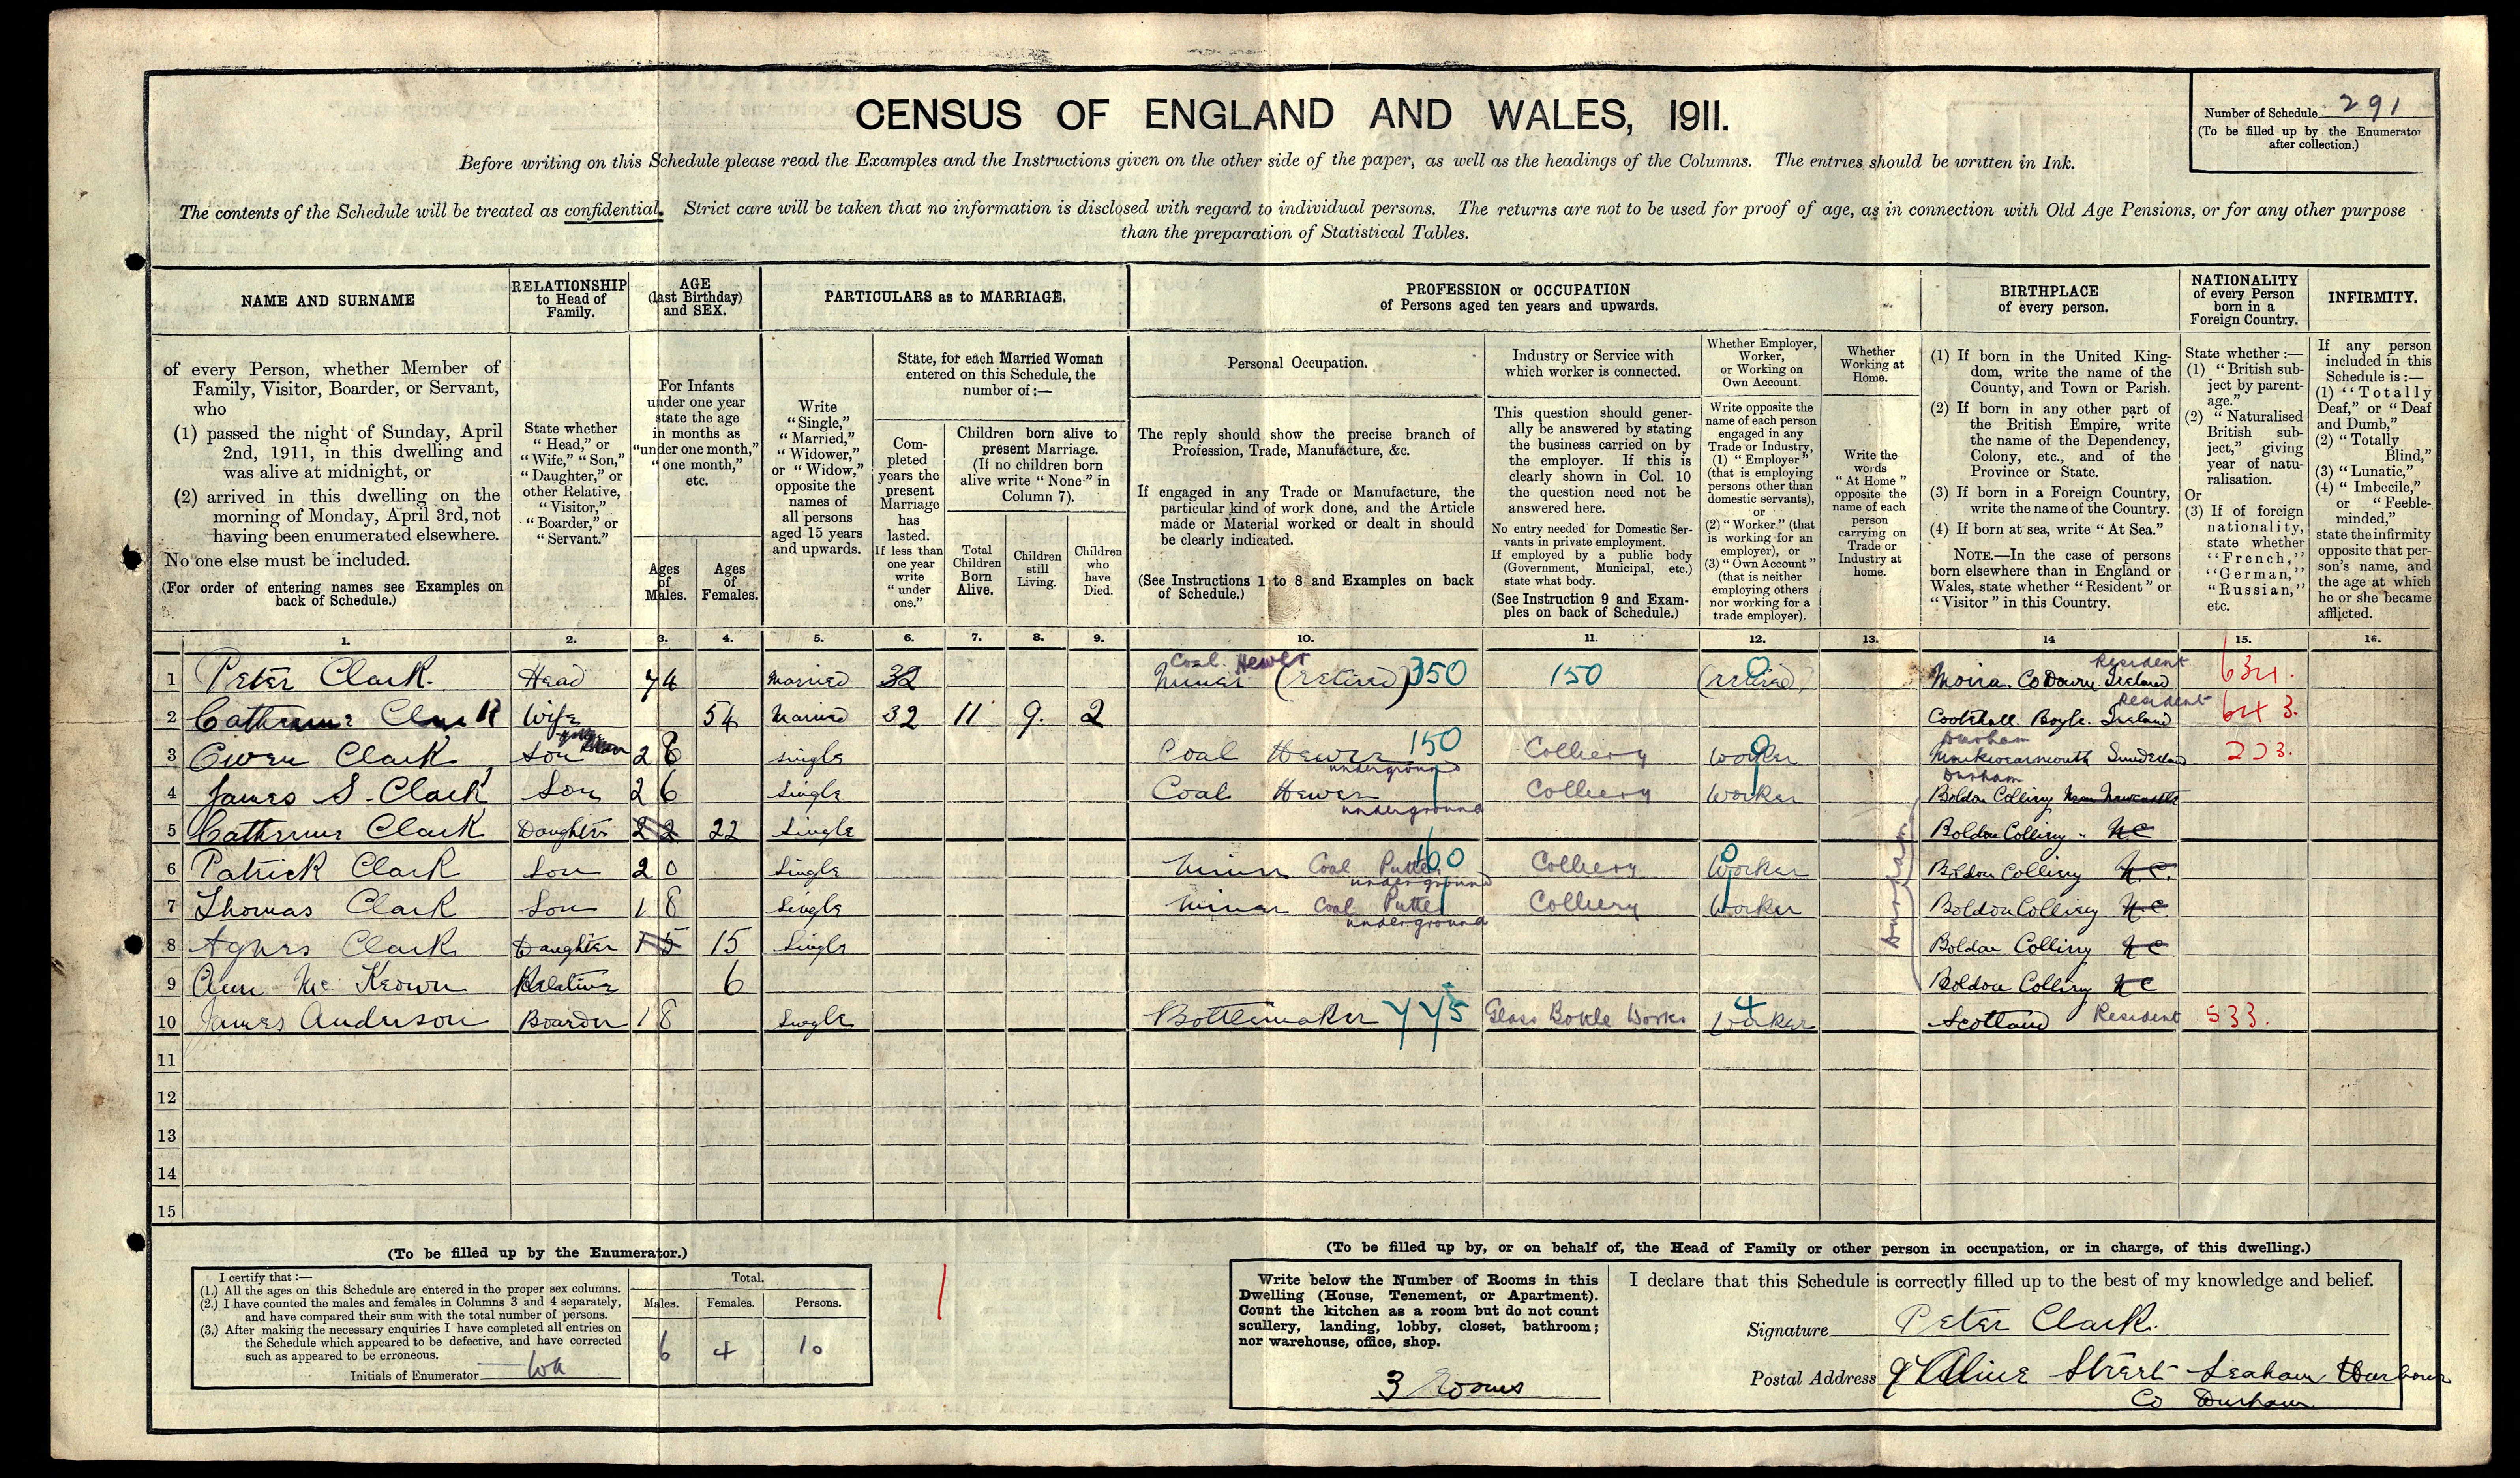 CENSUS OF ENGLAND AND WALES, 1911.
Number of Schedule 291
(To be filled up by the Enumerator after collection.)
Before writing on this Schedule please read the Examples and the Instructions given on the other side of the paper, as well as the headings of the Columns. The entries should be written in Ink.
The contents of the Schedule will be treated as confidential. Strict care will be taken that no information is disclosed with regard to individual persons. The returns are not to be used for proof of age, as in connection with Old Age Pensions, or for any other purpose
than the preparation of Statistical Tables.
NAME AND SURNAME
of every Person, whether Member of
Family, Visitor, Boarder, or Servant,
who
(1) passed the night of Sunday, April
2nd, 1911, in this dwelling and
was alive at midnight, or
(2) arrived in this dwelling on the
morning of Monday, April 3rd, not
having been enumerated elsewhere.
No one else must be included.
(For order of entering names see Examples on
back of Schedule.)
RELATIONSHIP
to Head of
Family.
State whether
"Head," or
"Wife," "Son,"
"Daughter," or
other Relative,
"Visitor,"
"Boarder," or
"Servant."
AGE
(last Birthday)
and SEX.
For Infants
under one year
state the age
in months as
"under one month,"
"one month,"
etc.
Ages
of
Males.
Ages
of
Females.
PARTICULARS as to MARRIAGE.
Write
"Single,"
"Married,"
"Widower,"
or "Widow,"
opposite the
names of
all persons
aged 15 years
and upwards.
State, for each Married Woman
entered on this Schedule, the
number of:—
Com-
pleted
years the
present
Marriage
has
lasted.
If less than
one year
write
"under
one."
Children born alive to
present Marriage.
(If no children born
alive write "None" in
Column 7).
Total
Children
Born
Alive.
Children
still
Living.
Children
who
have
Died.
PROFESSION or OCCUPATION
of Persons aged ten years and upwards.
Personal Occupation.
The reply should show the precise branch of
Profession, Trade, Manufacture, &c.
If engaged in any Trade or Manufacture, the
particular kind of work done, and the Article
made or Material worked or dealt in should
be clearly indicated.
(See Instructions 1 to 8 and Examples on back
of Schedule.)
Industry or Service with
which worker is connected.
This question should gener-
ally be answered by stating
the business carried on by
the employer. If this is
clearly shown in Col. 10
the question need not be
answered here.
No entry needed for Domestic Ser-
vants in private employment.
If employed by a public body
(Government, Municipal, etc.)
state what body.
(See Instruction 9 and Exam-
ples on back of Schedule.)
Whether Employer,
Worker,
or Working on
Own Account.
Write opposite the
name of each person
engaged in any
Trade or Industry,
(1) "Employer"
(that is employing
persons other than
domestic servants),
or
(2) "Worker" (that
is working for an
employer), or
(3) "Own Account"
(that is neither
employing others
nor working for a
trade employer).
Whether
Working at
Home.
Write the
words
"At Home"
opposite the
name of each
person
carrying on
Trade or
Industry at
home.
BIRTHPLACE
of every person.
(1) If born in the United King-
dom, write the name of the
County, and Town or Parish.
(2) If born in any other part of
the British Empire, write
the name of the Dependency,
Colony, etc., and of the
Province or State.
(3) If born in a Foreign Country,
write the name of the Country.
(4) If born at sea, write "At Sea."
NOTE.—In the case of persons
born elsewhere than in England or
Wales, state whether "Resident" or
"Visitor" in this Country.
NATIONALITY
of every Person
born in a
Foreign Country.
State whether:—
(1) "British sub-
ject by parent-
age."
(2) "Naturalised
British sub-
ject," giving
year of natu-
ralisation.
Or
(3) If of foreign
nationality,
state whether
"French,"
"German,"
"Russian,"
etc.
INFIRMITY.
If any person
included in this
Schedule is:—
(1) "Totally
Deaf," or "Deaf
and Dumb,"
(2) "Totally
Blind,"
(3) "Lunatic,"
(4) "Imbecile,"
or "Feeble-
minded,"
state the infirmity
opposite that per-
son's name, and
the age at which
he or she became
afflicted.
1. 2. 3. 4. 5. 6. 7. 8. 9. 10. 11. 12. 13. 14 15. 16.
Coal Hewer Resident
1 Peter Clark. Head 74 Married 32 Miner (retired) 350 150 (retired) 0 Moira. Co Down. Ireland 634.
Resident
2 Catherine Clark Wife 54 Married 32 11 9. 2 Cootehall. Boyle. Ireland 643.
Durham
3 Owen Clark Son 28 single Coal Hewer underground 150 Colliery Worker 0 Monkwearmouth Sunderland 223.
Durham
4 James S. Clark Son 26 Single Coal Hewer underground Colliery Worker Boldon Colliery Near Newcastle
5 Catherine Clark Daughter 22 22 Single Boldon Colliery " N.C
6 Patrick Clark Son 20 Single Miner Coal Putter underground 160 Colliery Worker 0 Boldon Colliery N.C.
7 Thomas Clark Son 18 Single Miner Coal Putter underground Colliery Worker Boldon Colliery N.C
Durham
8 Agnes Clark Daughter 15 15 Single Boldon Colliery N C
9 Ann Mc Keown Relative 6 Boldon Colliery N C
10 James Anderson Boarder 18 Single Bottlemaker 445 Glass Bottle Works Worker 4 Scotland Resident 533.
11
12
13
14
15
(To be filled up by the Enumerator.)
I certify that:—
(1.) All the ages on this Schedule are entered in the proper sex columns.
(2.) I have counted the males and females in Columns 3 and 4 separately,
and have compared their sum with the total number of persons.
(3.) After making the necessary enquiries I have completed all entries on
the Schedule which appeared to be defective, and have corrected
such as appeared to be erroneous.
Initials of Enumerator
Total.
Males. Females. Persons.
6 4 10
(To be filled up by, or on behalf of, the Head of Family or other person in occupation, or in charge, of this dwelling.)
Write below the Number of Rooms in this
Dwelling (House, Tenement, or Apartment).
Count the kitchen as a room but do not count
scullery, landing, lobby, closet, bathroom;
nor warehouse, office, shop.
3 Rooms
I declare that this Schedule is correctly filled up to the best of my knowledge and belief.
Signature Peter Clark.
Postal Address 9 Street Seaham Harbour
Co Durham